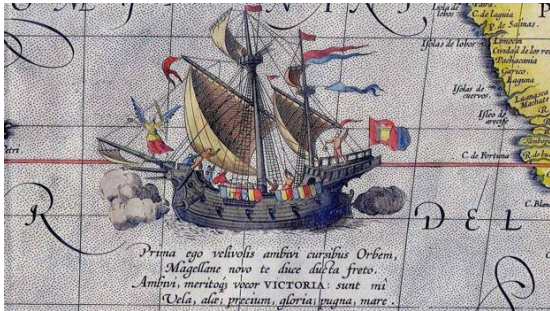 Isola de lobos
C. de laguia
R. de Salinas.
Isolas de lobos
Limocin
Ciudad de los rei
Pachacania
Garico.
Laguna
Isolas de cuervos.
C. de Fortuna
R
DEL
Prima ego velivolis ambivi cursibus Orbem,
Magellane novo te duce ducta freto.
Ambivi, meritoq; vocor VICTORIA: sunt mî
Vela, alæ; precium, gloria; pugna, mare.